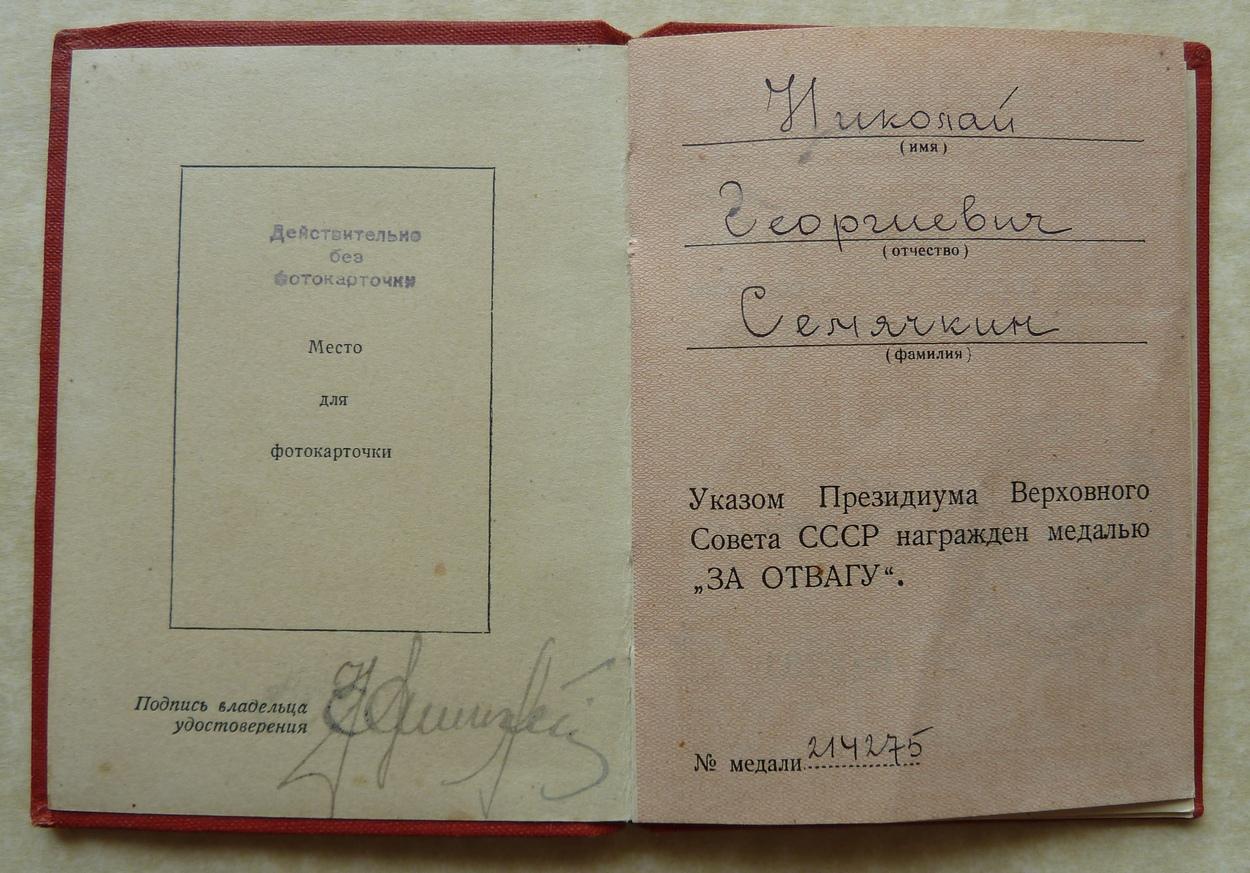 Действительно
без
фотокарточки
Место
для
фотокарточки
Подпись владельца
удостоверения
Николай
(имя)
Георгиевич
(отчество)
Семячкин
(фамилия)
Указом Президиума Верховного
Совета СССР награжден медалью
„ЗА ОТВАГУ“.
№ медали 214275